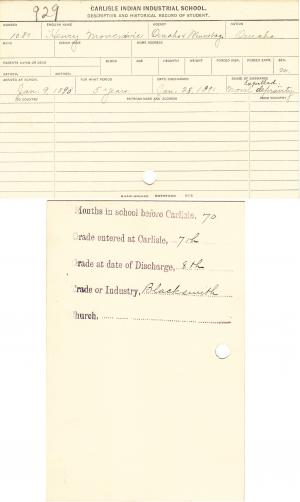 929
CARLISLE INDIAN INDUSTRIAL SCHOOL.
DESCRIPTIVE AND HISTORICAL RECORD OF STUDENT.
NUMBER ENGLISH NAME AGENCY NATION
1080 Henry Omaha & Winnebago Omaha
BAND INDIAN NAME HOME ADDRESS
PARENTS LIVING OR DEAD BLOOD AGE HEIGHT WEIGHT FORCED INSP. FORCED EXPR. SEX
FATHER, MOTHER, M.
ARRIVED AT SCHOOL FOR WHAT PERIOD DATE DISCHARGED CAUSE OF DISCHARGE
Expelled
Jan. 9, 5 years Jan. 28, Moral depravity
TO COUNTRY PATRONS NAME AND ADDRESS
Months in school before Carlisle, 70
Grade entered at Carlisle, 7th
Grade at date of Discharge, 8th
Trade or Industry, Blacksmith
Church,